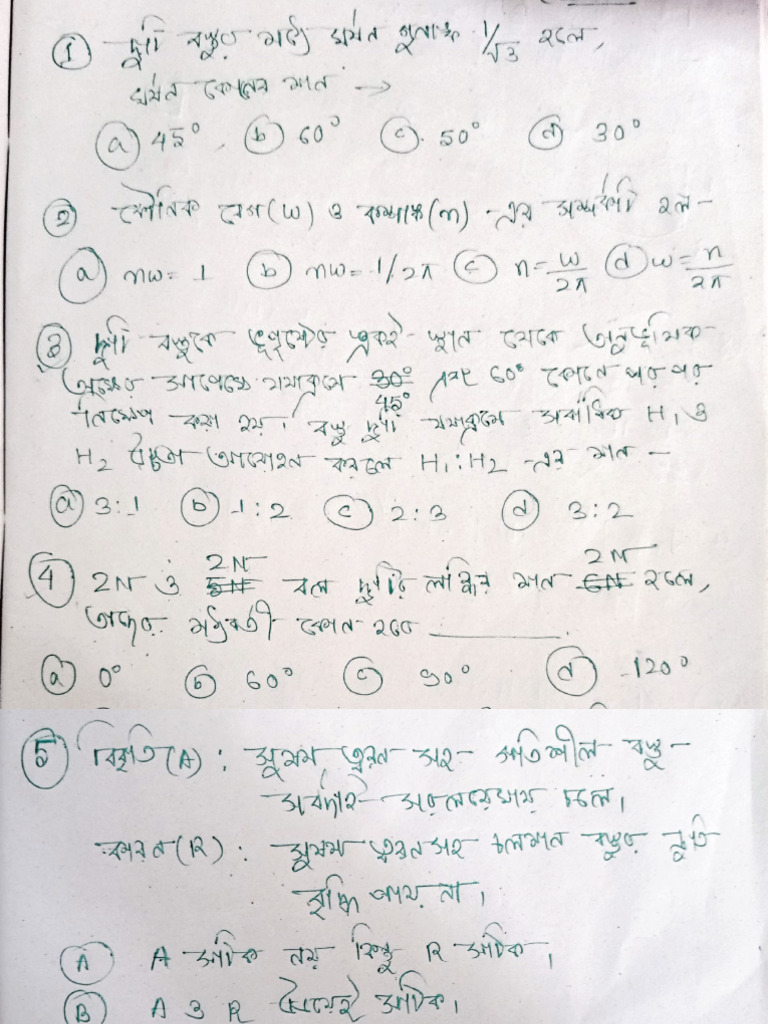 ① দুটি বস্তুর মধ্যে ঘর্ষন গুনাঙ্ক 1/√3 হলে,
ঘর্ষন কোনের মান →
ⓐ 45° ⓑ 60° ⓒ 50° ⓓ 30°
② কৌনিক বেগ (ω) ও কম্পাঙ্ক (n) -এর সম্পর্কটি হল-
ⓐ nω = 1 ⓑ nω = 1/2π ⓒ n = ω/2π ⓓ ω = n/2π
③ দুটি বস্তুকে ভূপৃষ্ঠের একই স্থান থেকে অনুভূমিক
অক্ষের সাপেক্ষে যথাক্রমে 45° এবং 60° কোনে পর পর
নিক্ষেপ করা হয়। বস্তু দুটি যথাক্রমে সর্বাধিক H₁ ও
H₂ উচ্চতা আরোহন করলে H₁ : H₂ -এর মান -
ⓐ 3:1 ⓑ 1:2 ⓒ 2:3 ⓓ 3:2
④ 2N ও 2N বল দুটির লব্ধির মান 2N হলে,
তাদের মধ্যবর্তী কোন হবে ______
ⓐ 0° ⓑ 60° ⓒ 90° ⓓ 120°
⑤ বিবৃতি (A) : সুষম ত্বরন সহ গতিশীল বস্তু
সর্বদাই সরলরেখায় চলে।
কারন (R) : সুষম ত্বরনসহ চলমান বস্তুর দ্রুতি
বৃদ্ধি পায় না।
Ⓐ A সঠিক নয় কিন্তু R সঠিক।
Ⓑ A ও R উভয়েই সঠিক।